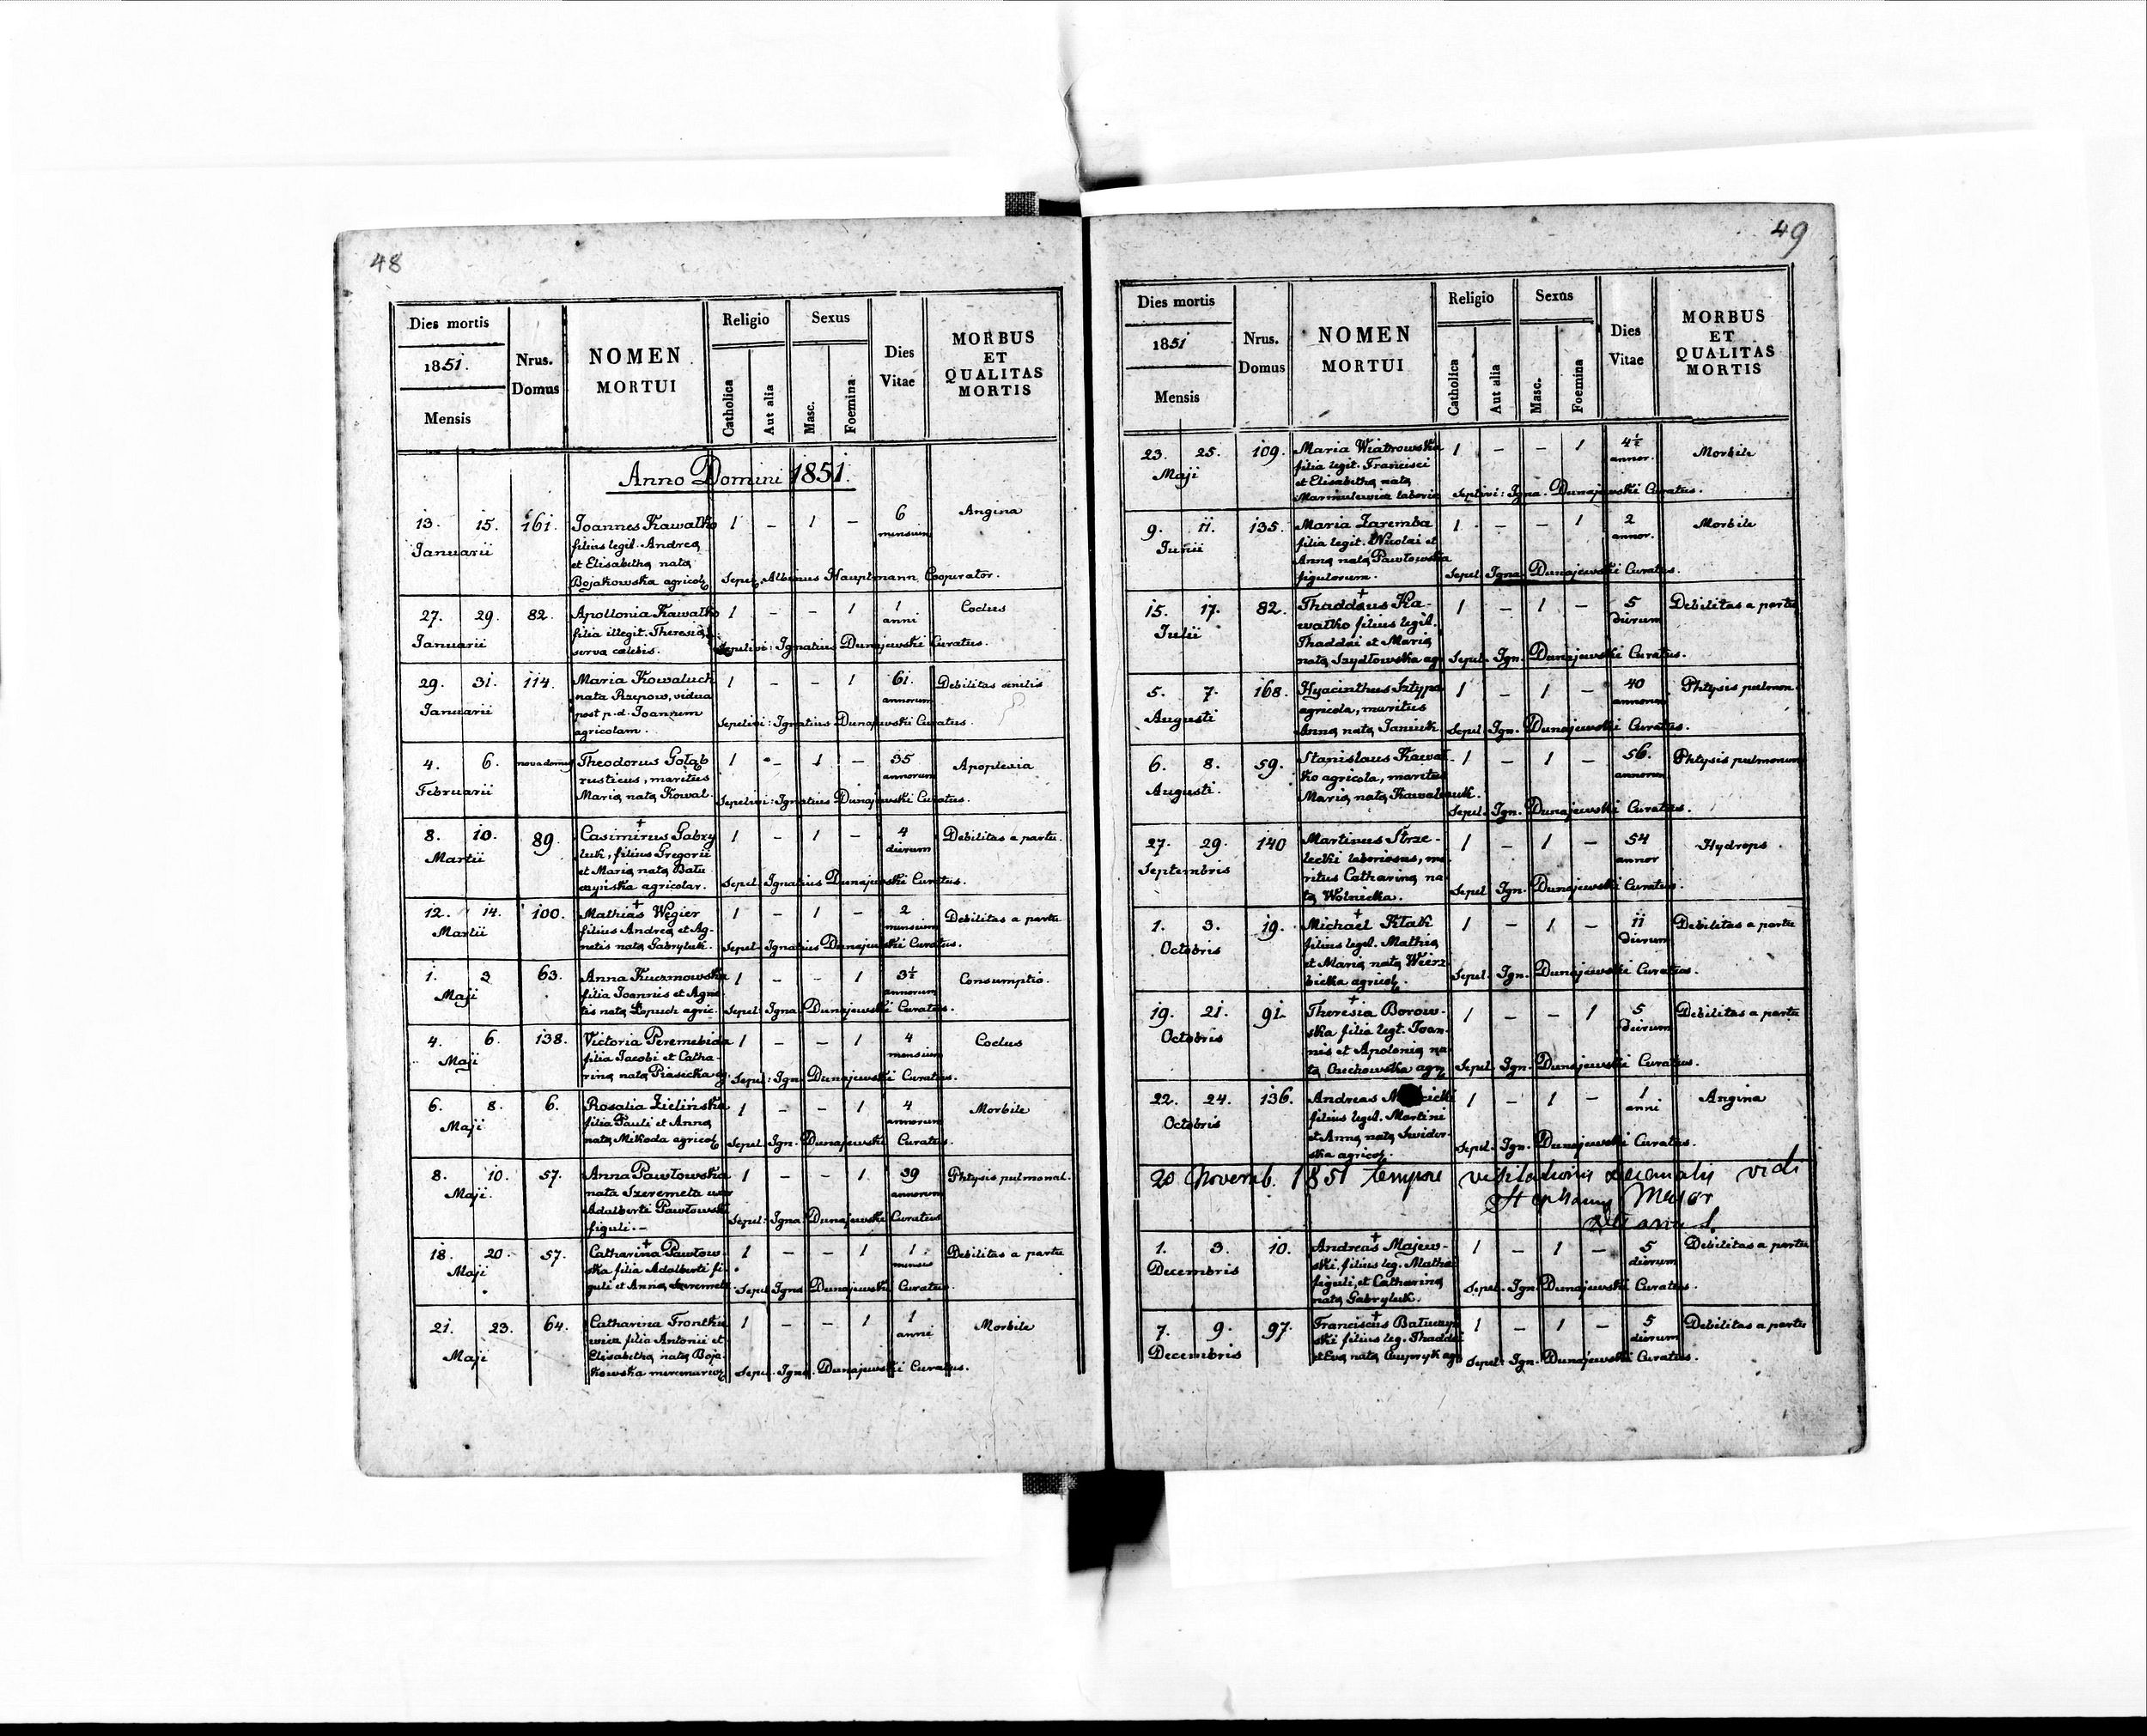 48
Dies mortis
1851.
Mensis
Nrus.
Domus
NOMEN
MORTUI
Religio
Catholica
Aut alia
Sexus
Masc.
Foemina
Dies
Vitae
MORBUS
ET
QUALITAS
MORTIS
Anno Domini 1851.
13. 15. 161. Joannes Kawałko 1 - 1 - 6 Angina
Januarii filius legit. Andreą mensium
et Elisabethą natą
Bojakowska agricolą Sepel. Albinus Hauptmann Cooperator.
27. 29. 82. Apollonia Kawałko 1 - - 1 1 Coclus
Januarii filia illegit. Theresią anni
serva cælebis. Sepelivi: Ignatius Dunajewski Curatus.
29. 31. 114. Maria Kowaluch 1 - - 1 61. Debilitas senilis
Januarii nata Rzepow, vidua annorum
post p. d. Joannem Sepelivi: Ignatius Dunajewski Curatus.
agricolam.
4. 6. nova domus Theodorus Gołąb 1 - 1 - 35 Apoplexia
Februarii rusticus, maritus annorum
Marią natą Kowal. Sepelivi: Ignatius Dunajewski Curatus.
8. 10. 89. Casimirus Gabry 1 - 1 - 4 Debilitas a partu.
Martii luk, filius Gregorii dierum
et Marią natą Batu
czyńska agricolar. Sepel. Ignatius Dunajewski Curatus.
12. 14. 100. Mathias Węgier 1 - 1 - 2 Debilitas a partu
Martii filius Andreą et Ag- mensium
netis natą Gabryluk. Sepel. Ignatius Dunajewski Curatus.
1. 3 63. Anna Kuczmowska 1 - - 1 3½ Consumptio.
Maji filia Joannis et Agne- annorum
tis natą Łopuch agric. Sepel. Igna. Dunajewski Curatus.
4. 6. 138. Victoria Peremebida 1 - - 1 4 Coclus
Maji filia Jacobi et Catha- mensium
riną natą Piasecka ag. Sepel: Ign. Dunajewski Curatus.
6. 8. 6. Rosalia Zielińska 1 - - 1 4 Morbile
Maji filia Pauli et Anną annorum
natą Mikoda agricol. Sepel. Ign. Dunajewski Curatus.
8. 10. 57. Anna Pawłowska 1 - - 1 39 Phtysis pulmonal.
Maji. nata Szeremeta uxor annorum
Adalberti Pawłowski Sepel: Igna. Dunajewski Curatus
figuli. -
18. 20. 57. Catharina Pawłow- 1 - - 1 1. Debilitas a partu
Maji ska filia Adalberti fi- mensis
guli et Anną Szeremeta Sepel. Igna. Dunajewski Curatus.
21. 23. 64. Catharina Frontke 1 - - 1 1 Morbile
Maji wicz filia Antonii et anni
Elisabethą natą Boja-
kowska mercenarior. Sepel. Igna. Dunajewski Curatus.
49
Dies mortis
1851
Mensis
Nrus.
Domus
NOMEN
MORTUI
Religio
Catholica
Aut alia
Sexus
Masc.
Foemina
Dies
Vitae
MORBUS
ET
QUALITAS
MORTIS
23. 25. 109. Maria Wiatrowska 1 - - 1 4½ Morbile
Maji filia legit. Francisci annor.
et Elisabethą natą
Marmulewicz laborio Seplivi: Igna. Dunajewski Curatus.
9. 11. 135. Maria Zaremba 1 - - 1 2 Morbile
Junii filia legit. Nicolai et annor.
Anną natą Pawłowska
figulorum. Sepel. Igna. Dunajewski Curatus.
15. 17. 82. Thaddæus Ka- 1 - 1 - 5 Debilitas a partu
Julii wałko filius legit. dierum
Thaddæi et Marią
natą Szydłowska ag. Sepel. Ign. Dunajewski Curatus.
5. 7. 168. Hyacinthus Sztypa 1 - 1 - 40 Phtysis pulmon.
Augusti agricola, maritus annorum
Anną natą Janiuk. Sepel. Ign. Dunajewski Curatus.
6. 8. 59. Stanislaus Kawał- 1 - 1 - 56. Phtysis pulmonum
Augusti. ko agricola, maritus annorum
Marią natą Kawalczuk. Sepel. Ign. Dunajewski Curatus.
27. 29. 140 Martinus Strze- 1 - 1 - 54 Hydrops.
Septembris lecki laboriosus, ma- annor
ritus Cathariną na-
tą Wolnicka. Sepel Ign. Dunajewski Curatus.
1. 3. 19. Michael Kłak 1 - 1 - 11 Debilitas a partu
Octobris filius legit. Mathią dierum
et Marią natą Wierz-
bicka agricol. Sepel. Ign. Dunajewski Curatus.
19. 21. 91. Theresia Borow- 1 - - 1 5 Debilitas a partu
Octobris ska filia legt. Joan- dierum
nis et Apolonią na-
tą Orzechowska agr. Sepel. Ign. Dunajewski Curatus.
22. 24. 136. Andreas 1 - 1 - 1 Angina
Octobris filius legit. Martini anni
et Anną natą Swider-
ska agricol. Sepel. Ign. Dunajewski Curatus.
20 Novemb. 1851 tempore visitationis decanalis vidi
Stephanus Mayer
Decanus
1. 3. 10. Andreas Majew- 1 - 1 - 5 Debilitas a partu
Decembris ski, filius leg. Mathą dierum
figuli, et Catharina
natą Gabryluk. Sepel. Ign. Dunajewski Curatus.
7. 9. 97. Franciscus Batuczyń 1 - 1 - 5 Debilitas a partu
Decembris ski filius leg. Thaddæi dierum
et Evą natą Cupryk agr. Sepel: Ign. Dunajewski Curatus.